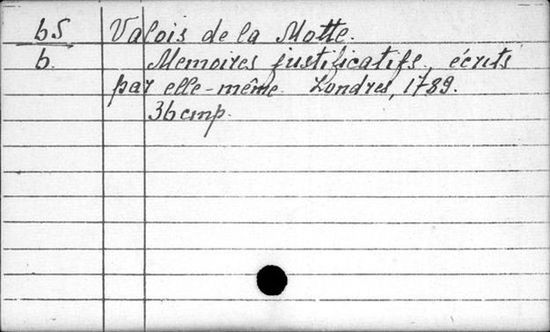 65 Valois de la Motte.
6. Memoires justificatifs, écrits
par elle-même. Londres, 1789.
36 cmp.